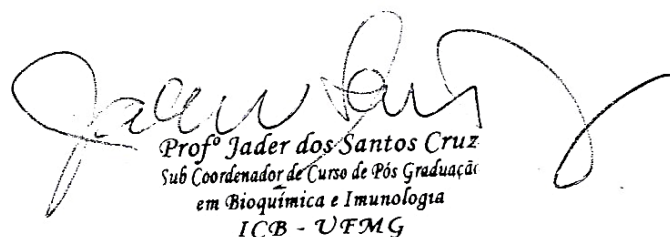 Profº Jader dos Santos Cruz
Sub Coordenador de Curso de Pós Graduação
em Bioquímica e Imunologia
ICB - UFMG